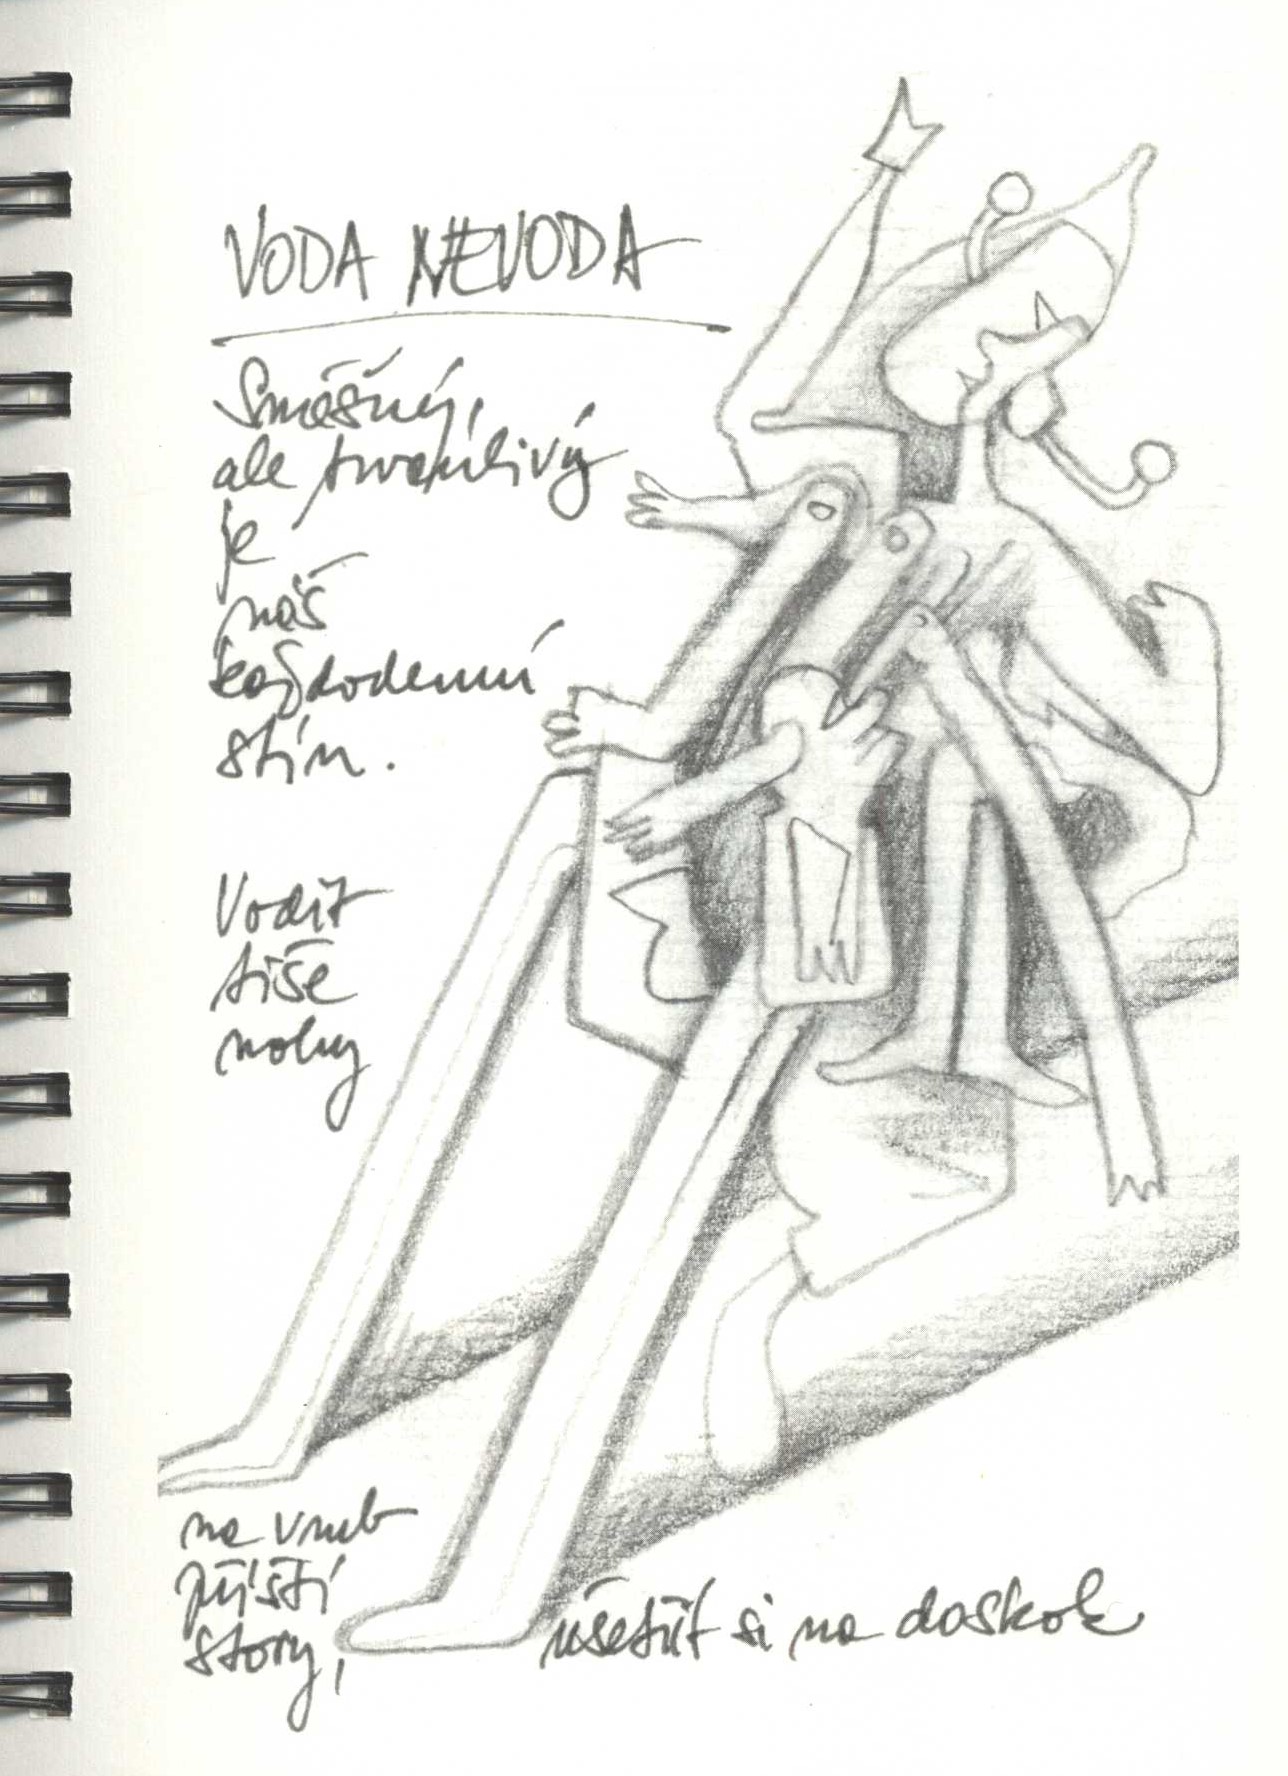 VODA NEVODA
Směšný,
ale trvanlivý
je
náš
každodenní
stín.
Vodit
tiše
nohy
na vrub
příští
story,
ušetřit si na doskok